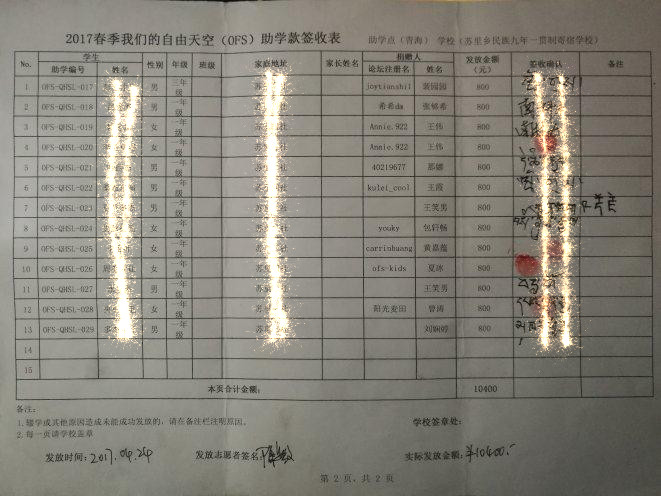 2017春季我们的自由天空（OFS）助学款签收表 助学点（青海） 学校（苏里乡民族九年一贯制寄宿学校）
No. 学生 性别 年级 班级 家庭地址 家长姓名 捐赠人 发放金额（元） 签收确认 备注
助学编号 姓名 论坛注册名 姓名
1 OFS-QHSL-017 男 三年级 苏 joytianshil 裴园园 800
2 OFS-QHSL-018 男 一年级 苏 社 希希dm 张够希 800
3 OFS-QHSL-019 女 一年级 苏 社 Annie.922 王伟 800
4 OFS-QHSL-020 女 一年级 苏 社 Annie.922 王伟 800
5 OFS-QHSL-021 男 一年级 苏 社 40219677 那娜 800
6 OFS-QHSL-022 男 一年级 苏 社 kulei_cool 王霞 800
7 OFS-QHSL-023 男 一年级 苏 社 王笑男 800
8 OFS-QHSL-024 女 一年级 苏 社 youky 包轩畅 800
9 OFS-QHSL-025 女 一年级 苏 社 carrinhuang 黄嘉蕴 800
10 OFS-QHSL-026 女 一年级 苏 社 ofs-kids 夏冰 800
11 OFS-QHSL-027 男 一年级 苏 社 王笑男 800
12 OFS-QHSL-028 女 一年级 苏 社 阳光麦田 曾涛 800
13 OFS-QHSL-029 男 一年级 苏 社 刘娴婷 800
14
15
本页合计金额： 10400
备注：
1.辍学或其他原因造成未能成功发放的，请在备注栏注明原因。 学校签章处：
2.每一页请学校盖章
发放时间：2017.04.24 发放志愿者签名： 实际发放金额：¥10400.-
第 2 页，共 2 页